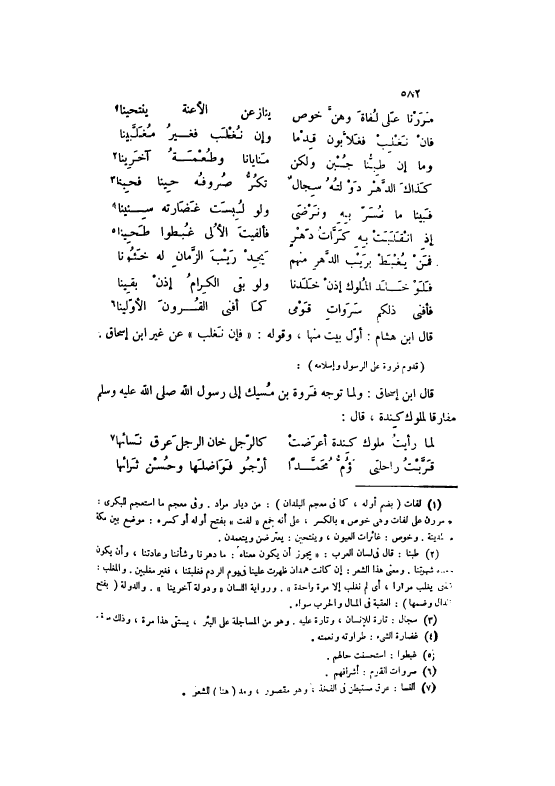 ٥٨٢
مَرَرْنا عَلَى لُفاةَ وهنَّ خوص ينازعن الأعنة ينتحينا١
فانْ نَغْلِبْ فغلّابون قِدْما وإن نُغْلَب فغيرُ مُغَلَّبينا
وما إن طِبُّنا جُبْن ولكن منايانا وطُعْمَةُ آخَرِينا٢
كذاكَ الدَّهْر دَوْلتُهُ سِجالٌ تَكُرُّ صُروفُه حينا فحينا٣
فَبينا ما نُسَرّ بِهِ ونَرْضَى ولو لُبِستْ غَضَارته سِنينا٤
إذ انْقَلَبَتْ بِهِ كَرَّات دَهْرٍ فألفيتَ الأُلى غُبِطوا طَحِينا٥
فَمَنْ يُغْبَط برَيْب الدَّهر منهم يَجِدْ رَيْبَ الزَّمان له خَئُونا
فَلَوْ خَلَد المُلوك إذنْ خَلَدنا ولو بقى الكرامُ إذنْ بقينا
فأفنى ذلكم سَرَواتِ قَوْمى كما أفنى القُرونَ الأوّلينا٦
قال ابن هشام : أوّل بيت منها ، وقوله : « فإن نَغلب » عن غير ابن إسحاق .
( قدوم فروة على الرسول وإسلامه ) :
قال ابن إسحاق : ولما توجه فَروة بن مُسيك إلى رسول الله صلى الله عليه وسلم
مفارقا لملوك كِندة ، قال :
لما رأيتُ ملوك كندة أعرَضتْ كالرّجل خان الرجلَ عرق نَسائها٧
قَرَّبْتُ راحلتى أؤُمُّ مُحَمَّدًا أرْجُو فَوَاضلَها وحُسْن ثَرائها
(١) لفات ( بضم أوله ، كما فى معجم البلدان ) : من ديار مراد . وفى معجم ما استعجم للبكرى :
« مررن على لفات وهى خوص » بالكسر ، على أنه جمع « لفت » بفتح أوله أو كسره : موضع بين مكة
والمدينة . وخوص : غائرات العيون ، وينتحين : يعترضن ويتعمدن .
(٢) طبنا : قال فى لسان العرب : « يجوز أن يكون معناه : ما دهرنا وشأننا وعادتنا ، وأن يكون
شهوتنا . ومعنى هذا الشعر : إن كانت همدان ظهرت علينا فى يوم الردم فغلبتنا ، فغير مغلبين . والمغلب :
الذى يغلب مرارا ، أى لم نغلب إلا مرة واحدة » . ورواية اللسان « ودولة آخرينا » . والدولة ( بفتح
الدال وضمها ) : العقبة فى المال والحرب سواء .
(٣) سجال : تارة للإنسان ، وتارة عليه . وهو من المساجلة على البئر ، يستقى هذا مرة ، وذلك مرة .
(٤) غضارة الشىء : طراوته ونعمته .
(٥) غبطوا : استحسنت حالهم .
(٦) سروات القوم : أشرافهم .
(٧) النسا : عرق مستبطن فى الفخذ ، وهو مقصور ، ومد ( هنا ) للشعر .